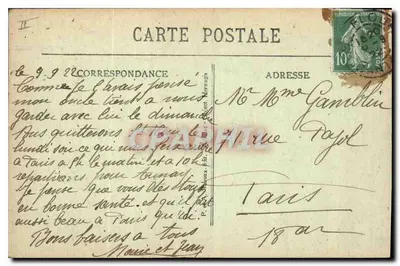 II
CARTE POSTALE
10c
le 9.9.22 CORRESPONDANCE
ADRESSE
Comme je l'avais pensé
mon oncle tient à nous
garder avec lui le dimanche
nous quitterons
lundi soir ce qui nous fera être
à Paris à le matin et à 10h
repartirons pour
je pense que vous êtes tous
en bonne santé et qu'il fait
aussi beau à Paris qu'ici.
Bons baisers à tous
Marie et Jean
Mr Mme Gamblin
71 rue Pajol
Paris
18 arr